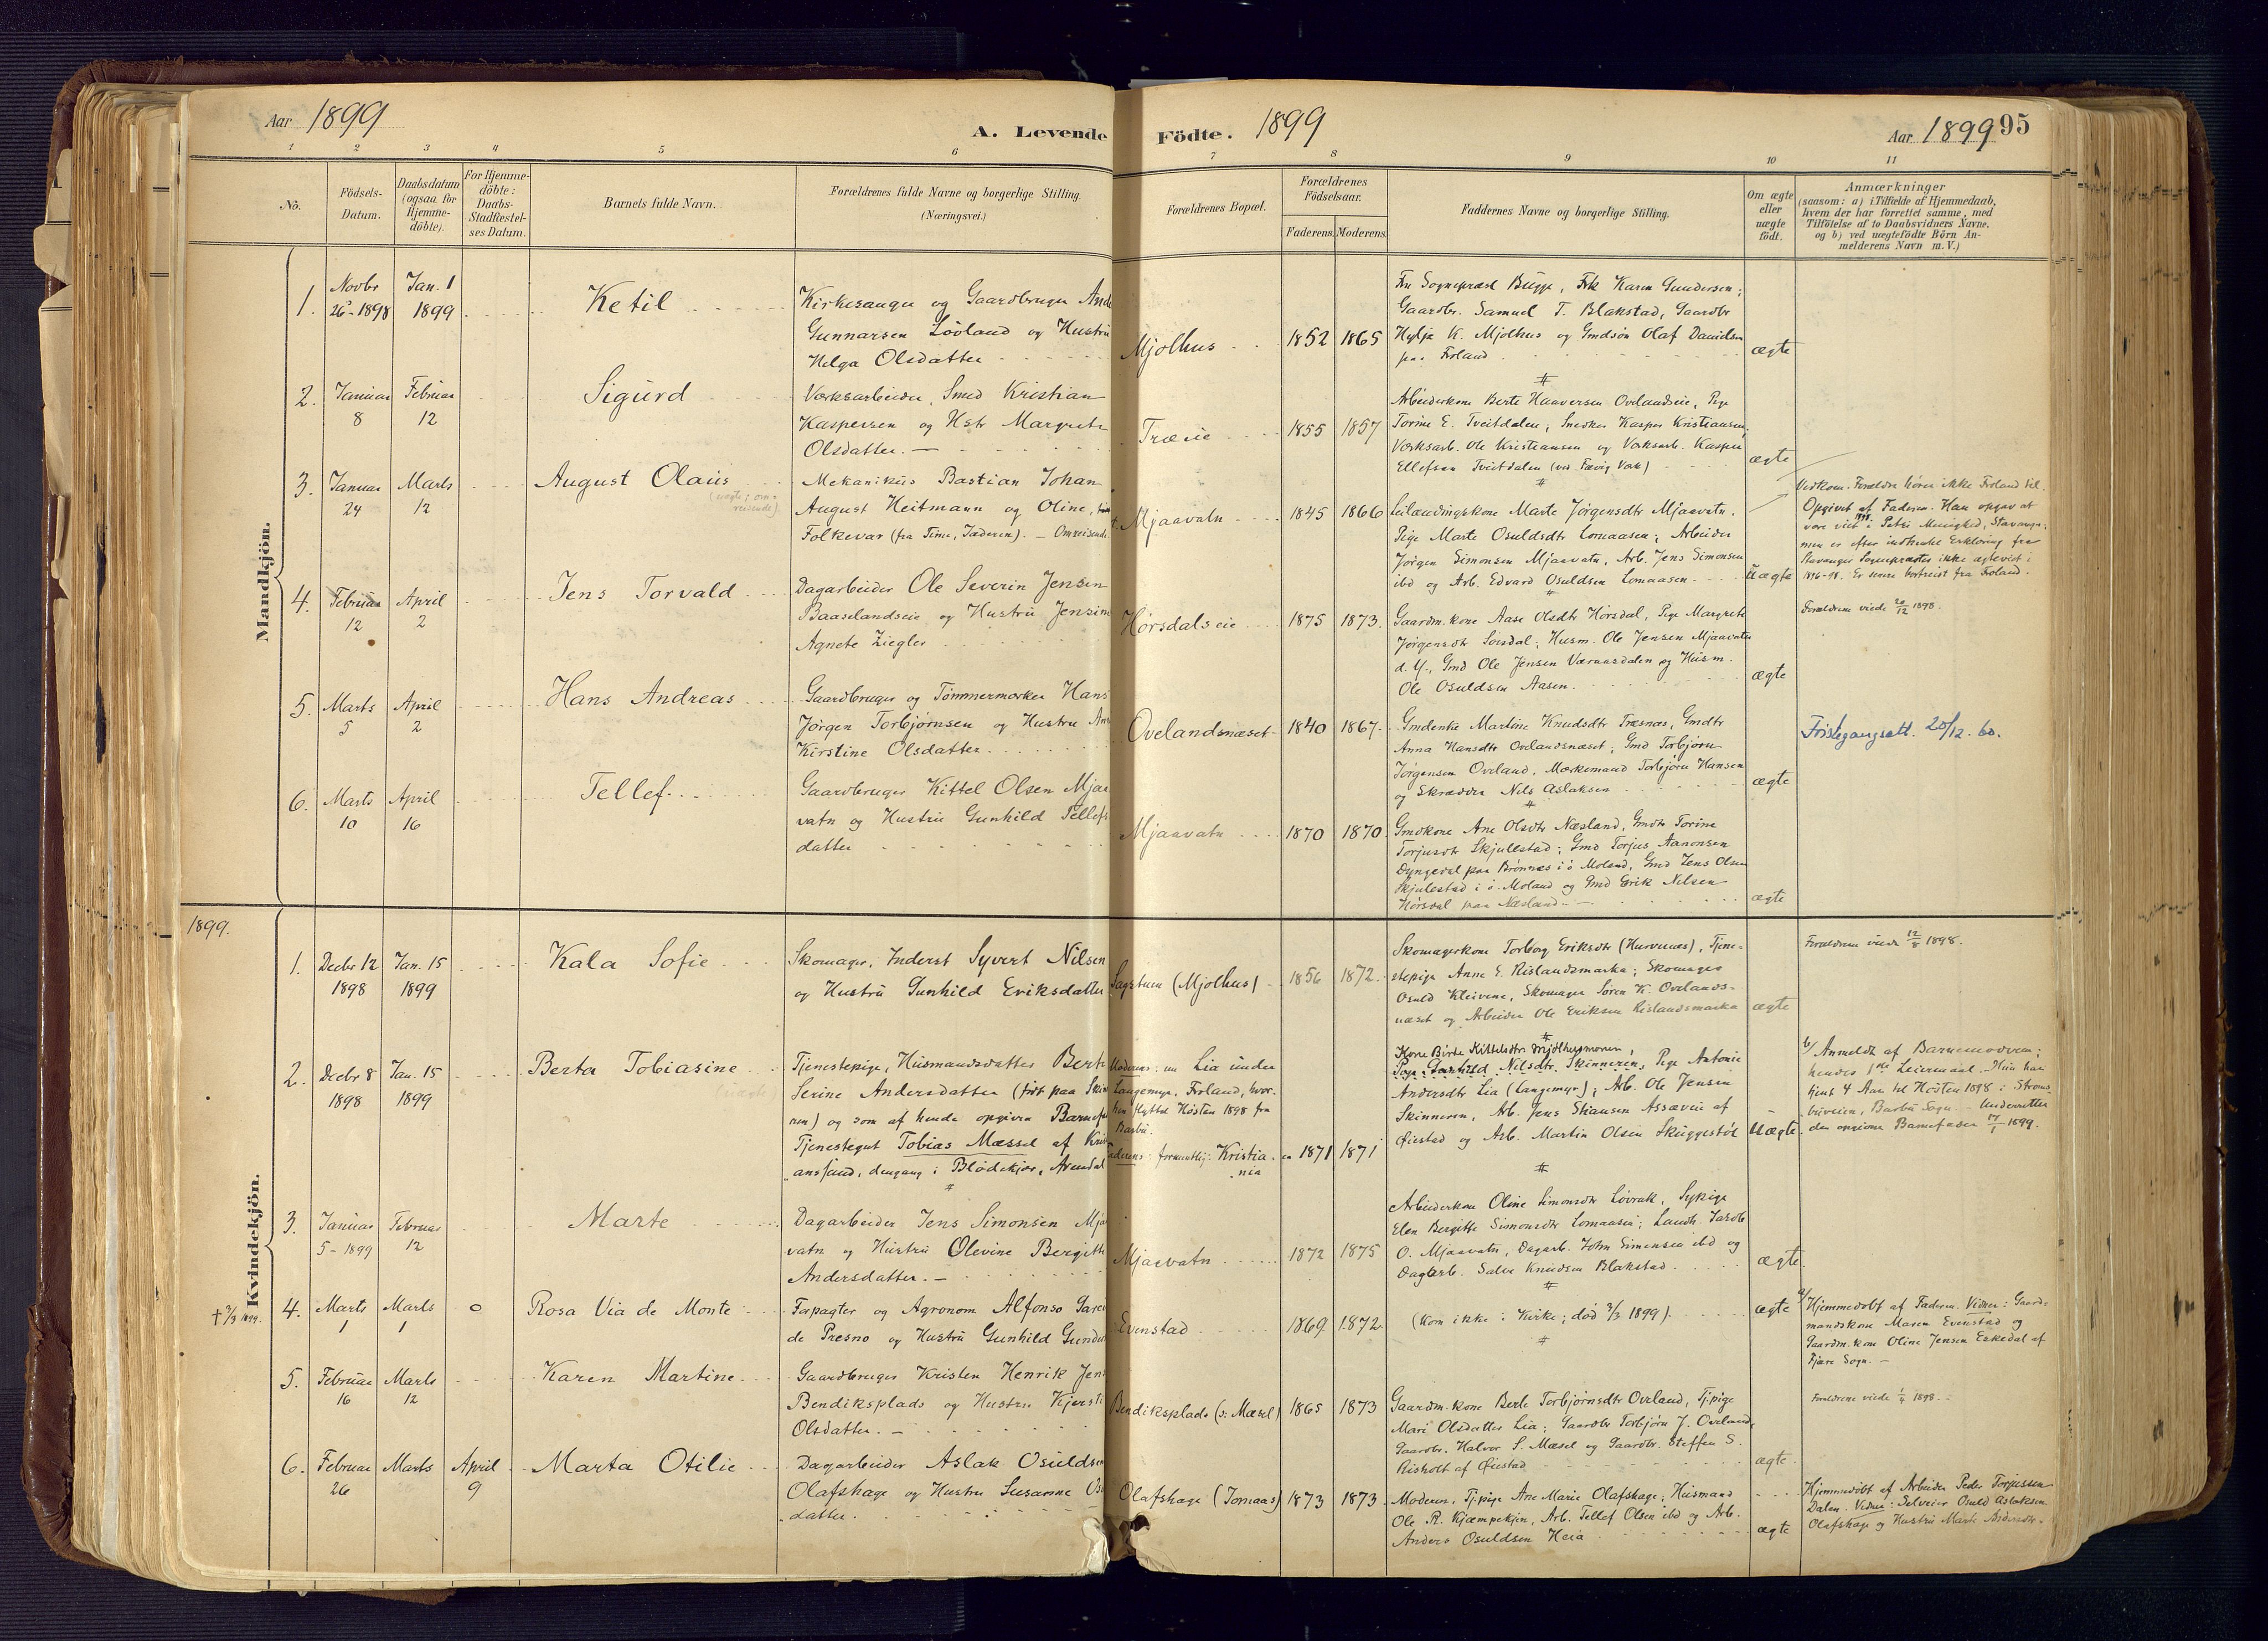 Aar 1899
A. Levende
Födte. 1899
Aar 1899 95
1 2 3 4 5 6 7 8 9 10 11
No.
Födsels-
Datum.
Daabsdatum
(ogsaa for
Hjemme-
döbte).
For Hjemme-
döbte:
Daabs-
Stadfæstel-
ses Datum.
Barnets fulde Navn.
Forældrenes fulde Navne og borgerlige Stilling.
(Næringsvei.)
Forældrenes Bopæl.
Forældrenes
Födselsaar.
Faderens. Moderens.
Faddernes Navne og borgerlige Stilling.
Om ægte
eller
uægte
födt.
Anmærkninger
(saasom: a) i Tilfælde af Hjemmedaab,
hvem der har forrettet samme, med
Tilföielse af to Daabsvidners Navne,
og b) ved uægtefödte Börn An-
melderens Navn m. V.)
Mandkjön.
1. Novbr 26-1898
Jan. 1 1899
Ketil
Kirkesanger og Gaardbruger And
Gunnarsen Lövland og Hustru
Helga Olsdatter
Mjølhus
1852 1865
Fru Sogneprest Bugge, Frk Karen Gundersen;
Gaardbr. Samuel T. Blakstad, Gaardbr
K. Mjølhus og Gmdsøn Olaf Davidsen
paa Froland
ægte
2. Januar 8
Februar 12
Sigurd
Værksarbeider, Smed Kristian
Kaspersen og Hstr Margrete
Olsdatter.
Træeie
1855 1857
Arbeiderkone Berte Haaversen Ovelandseie, Pige
Torine E. Tveitdalen; Snedker Kasper Kristiansen,
Værksarb. Ole Kristiansen og Værksarb. Kasper
Ellefsen Tveitdalen (ved Fævig Værk)
ægte
3. Januar 24
Marts 12
August Olaüs
(uægte; om-
reisende)
Mekanikus Bastian Johan
August Heitmann og Oline,
Folkevar (fra Time, Jæderen). - Omreisende
Mjaavatn
1845 1866
Leilændingskone Marte Jørgensdtr Mjaavatn,
Pige Marte Osuldsdtr Lomaasen; Arbeider
Jørgen Simonsen Mjaavatn, Arb. Jens Simonsen
ibd og Arb. Edvard Osuldsen Lomaasen
Uægte
Vedkom. Forældre hører ikke Froland til.
Opgivet af Faderen. Han opgav at
være viet 1898 i Petri Menighed, Stavanger;
men er efter indhentet Erklæring fra
Stavanger Sognepræster ikke ægteviet i
1896-98. Er senere bortreist fra Froland.
4. Februar 12
April 2
Jens Torvald
Dagarbeider Ole Severin Jensen
Baaselandseie og Hustru Jensine
Agnete Ziegler
Hørsdalseie
1875 1873
Gaardm.kone Aase Olsdtr Hørsdal, Pige Margrete
Jørgensdtr Sørsdal; Husm. Ole Jensen Mjaavatn
d. Y., Gmd Ole Jensen Væraasdalen og Husm.
Ole Osuldsen Aasen.
ægte
Forældrene viede 20/12 1898.
5. Marts 5
April 2
Hans Andreas
Gaardbruger og Tømmermærker Hans
Jørgen Torbjørnsen og Hustru
Kirstine Olsdatter
Ovelandsnæset
1840 1867
Gmdenke Martine Knudsdtr Træsnæs, Gmdtr
Anna Hansdtr Ovelandsnæset; Gmd Torbjørn
Jørgensen Oveland, Mærkemand Torbjørn Hansen
og Skrædder Nils Aslaksen
ægte
Fristegangsatt. 20/12.60.
6. Marts 10
April 16
Tellef
Gaardbruger Kittel Olsen Mjaa
vatn og Hustru Gunhild Tellefs
datter
Mjaavatn
1870 1870
Gmdkone Ane Olsdtr Næsland, Gmdtr Torine
Torjusdtr Skjulestad; Gmd Torjus Aanonsen
Dyngedal paa Brønnæs i ö Moland, Gmd Jens Olsen
Skjulestad i ö. Moland og Gmd Erik Nilsen
Hørsdal paa Næsland
ægte
1899.
Kvindekjön.
1. Decbr 12 1898
Jan. 15 1899
Kala Sofie
Skomager, Inderst Syvert Nilsen
og Hustru Gunhild Eriksdatter
Sagstuen (Mjølhus)
1856 1872
Skomagerkone Torborg Eriksdtr (Hurvenæs), Tjene-
stepige Anne E. Rislandsmarka; Skomager
Osuld Kleivene, Skomager Søren K. Ovelands-
næset og Arbeider Ole Eriksen Rislandsmarka
ægte
Forældrene viede 12/8 1898.
2. Decbr 8 1898
Jan. 15 1899
Berta Tobiasine
Tjenestepige, Husmandsdatter Berte
Serine Andersdatter (født paa Skin
nen) og som af hende opgiven Barnefar
Tjenestegut Tobias Mæssel af Kristi
anssand, dengang i Blødekjær, Arendal
Moderens: nu Lia under
Langemyr, Froland, hvor-
hen flyttet Høsten 1898 fra
Barbu.
Faderens: formentlig: Kristia-
nia
1871 1871
Kone Birte Kittelsdtr Mjølhusmonen,
Pige Gunhild Nilsdtr. Skinneren, Pige Antonie
Andersdtr Lia (Langemyr); Arb. Ole Jensen
Skinneren, Arb. Jens Stiansen Assævie af
Øiestad og Arb. Martin Olsen Skuggestøl
Uægte
b/ Anmeldt af Barnemoderen;
hendes 1ste Leiermaal. Hun har
tjent 4 Aar til Høsten 1898 i Strøms-
buveien, Barbu Sogn. Underretter
den opgivne Barnefader 17/1 1899.
3. Januar 5-1899
Februar 12
Marte
Dagarbeider Jens Simonsen Mja
vatn og Hustru Olevine Bergitte
Andersdatter.
Mjaavatn
1872 1875
Arbeiderkone Oline Simonsdtr Løvrak, Sypige
Elen Bergitte Simonsdtr Lomaasen; Landh. Jakob
O. Mjaavatn, Dagarb. John Simonsen ibd og
Dagarb. Salve Knudsen Blakstad
ægte
† 3/3 1899.
4. Marts 1
Marts 1
o
Rosa Via de Monte
Forpagter og Agronom Alfonso Garci
de Presno og Hustru Gunhild Gunder
Evenstad
1869 1872
(Kom ikke i Kirke; død 3/3 1899).
ægte
a/ Hjemmedøbt af Faderen. Vidner: Gaard-
mandskone Maren Evenstad og
Gaardm.kone Oline Jensen Eskedal af
Fjære Sogn.
5. Februar 16
Marts 12
Karen Martine
Gaardbruger Kristen Henrik Jen
Bendiksplads og Hustru Kjersti
Olsdatter.
Bendiksplads (v: Mæsel)
1865 1873
Gaardm.kone Berte Torbjørnsdtr Oveland, Tj.pige
Mari Olsdatter Lia; Gaardbr Torbjørn J. Oveland,
Gaardbr. Halvor S. Mæsel og Gaardbr. Steffen S.
Risholt af Øiestad
ægte
Forældrene viede 1/4 1898.
6. Februar 26
Marts
April 9
Marta Otilie
Dagarbeider Aslak Osuldsen
Olafshage og Hustru Susanne Os
datter.
Olafshage (Tomaas)
1873 1873
Moderen, Tj.pige Ane Marie Olafshage; Husmand
Ole R. Kjæmpekjen, Arb. Tellef Olsen ibd og Arb.
Anders Osuldsen Heia
ægte
Hjemmedøbt af Arbeider Peder Torjussen
Dalen. Vidner: Selveier Osuld Aslaksen
Olafshage og Hustru Marte Andersdtr.